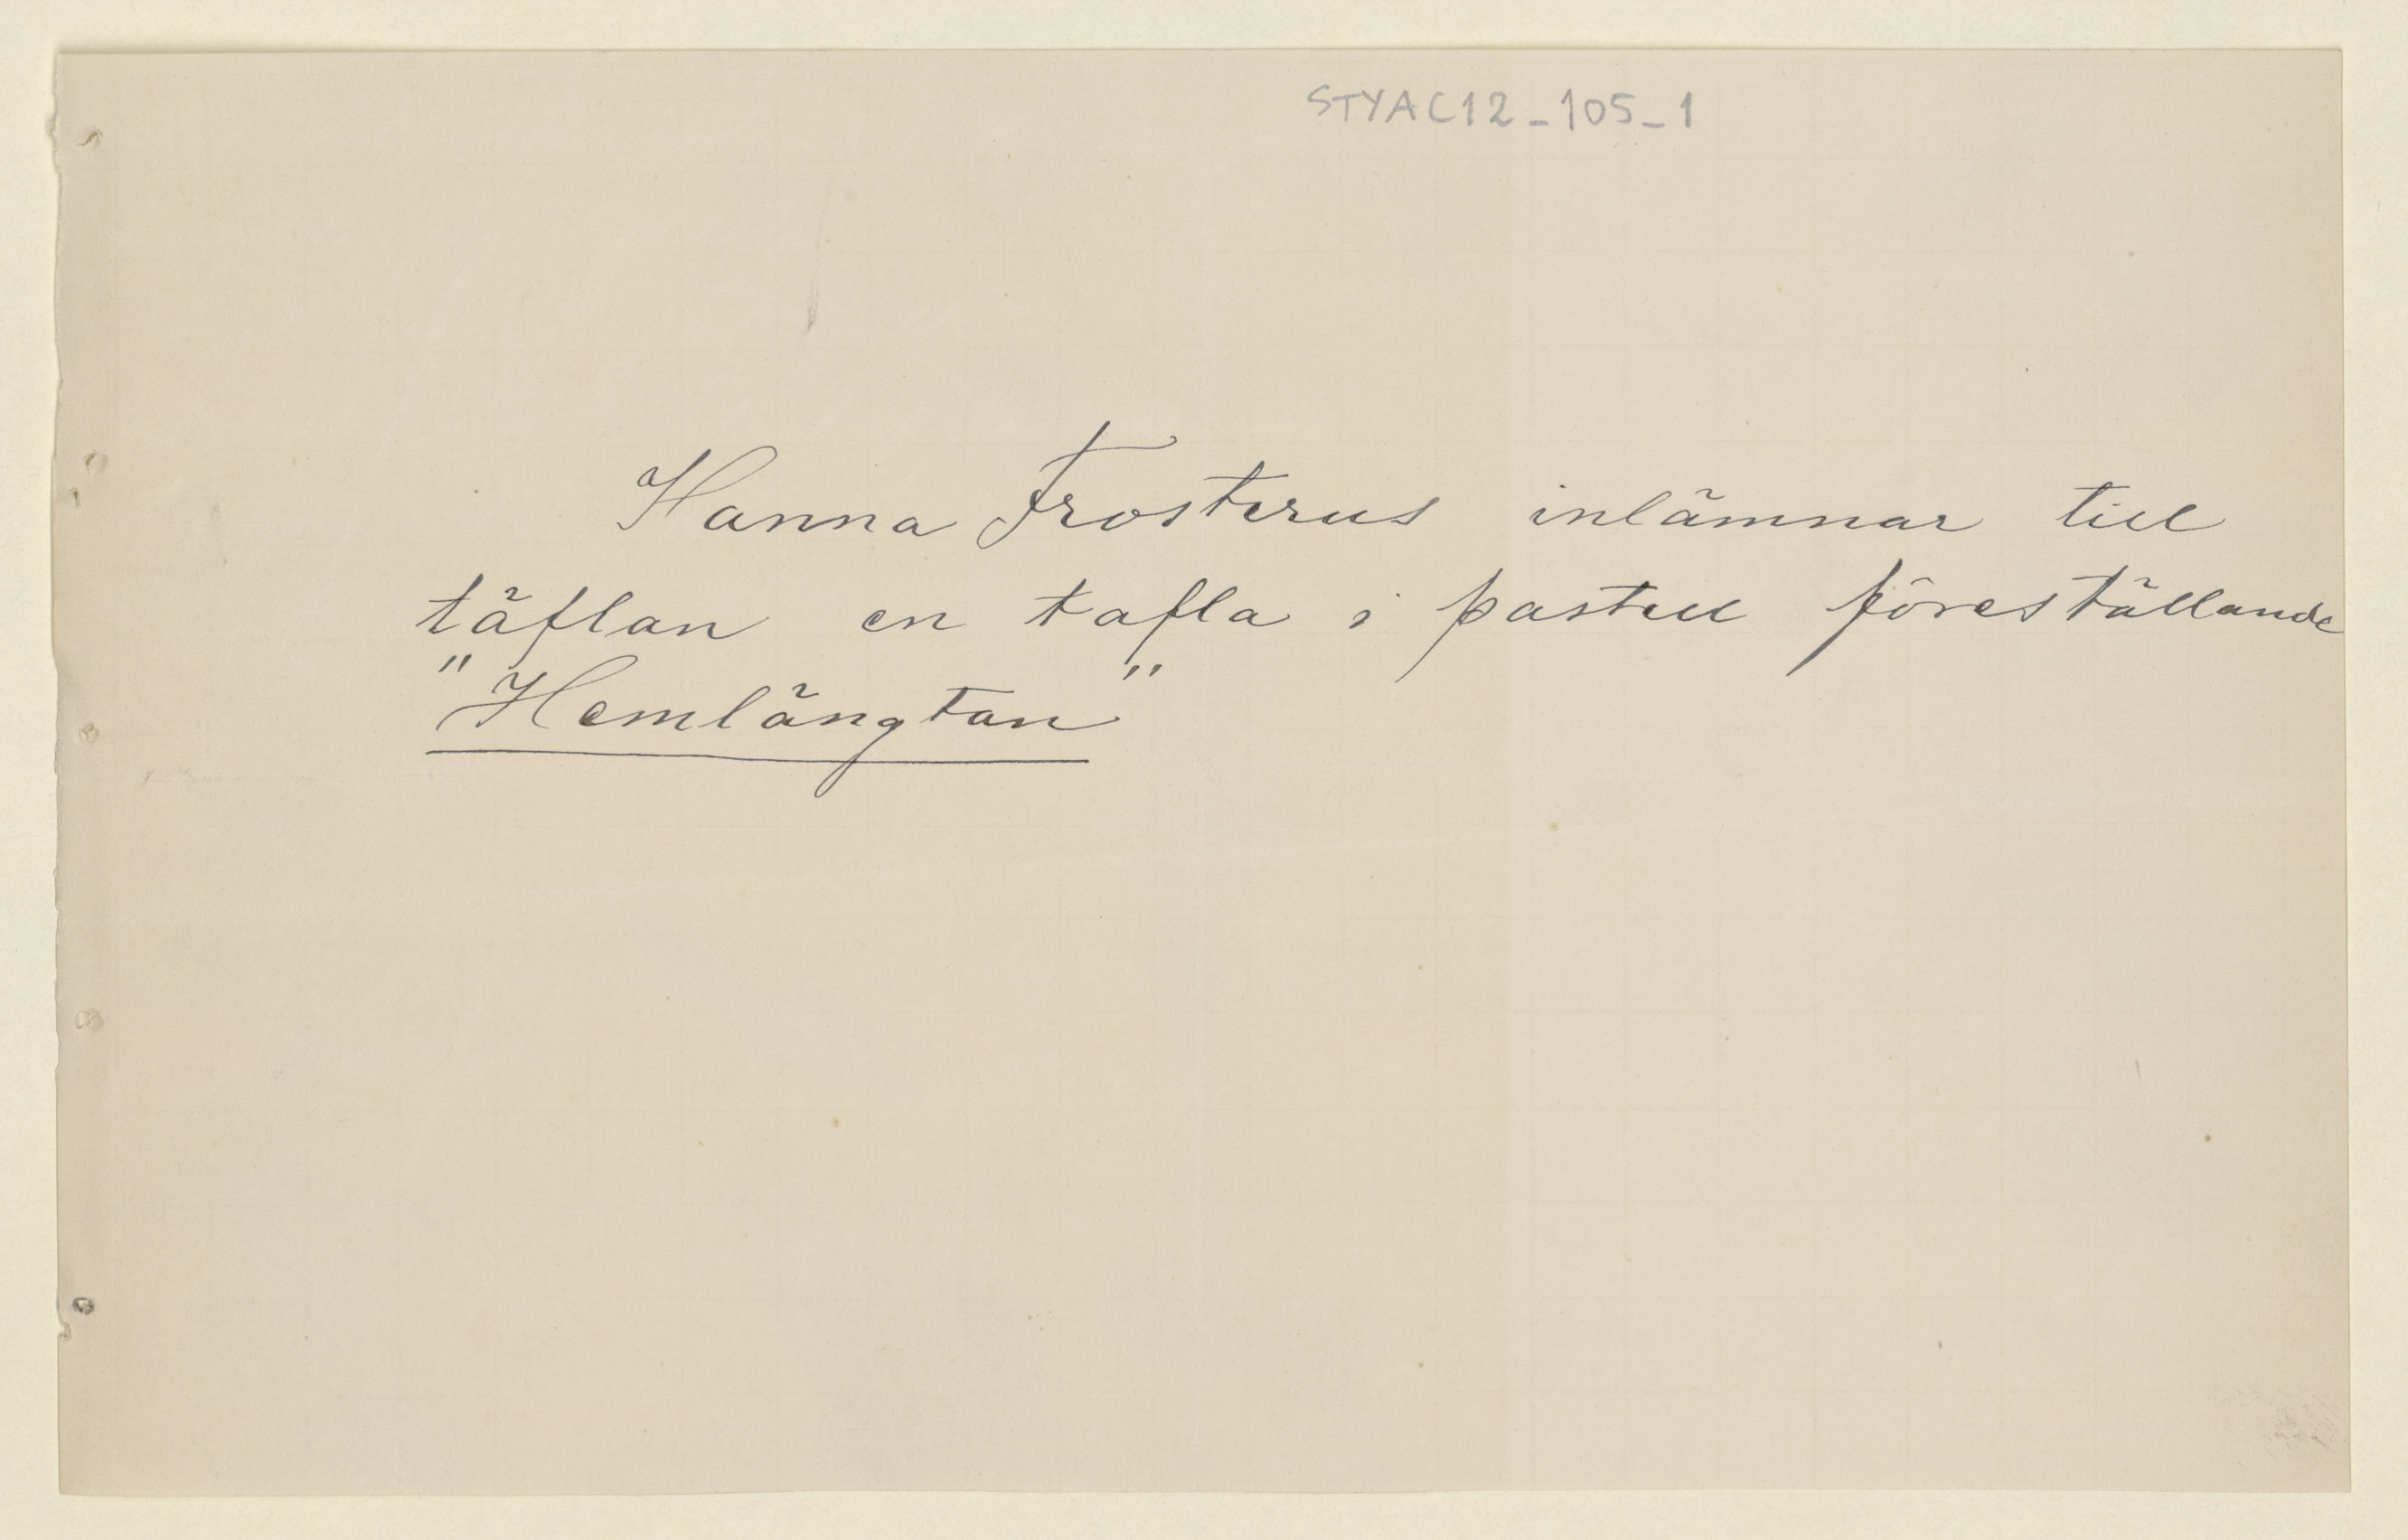 STYAC12_105_1
Hanna Frosterus inlämnar till
täflan en tafla i pastell föreställande
"Hemlängtan"